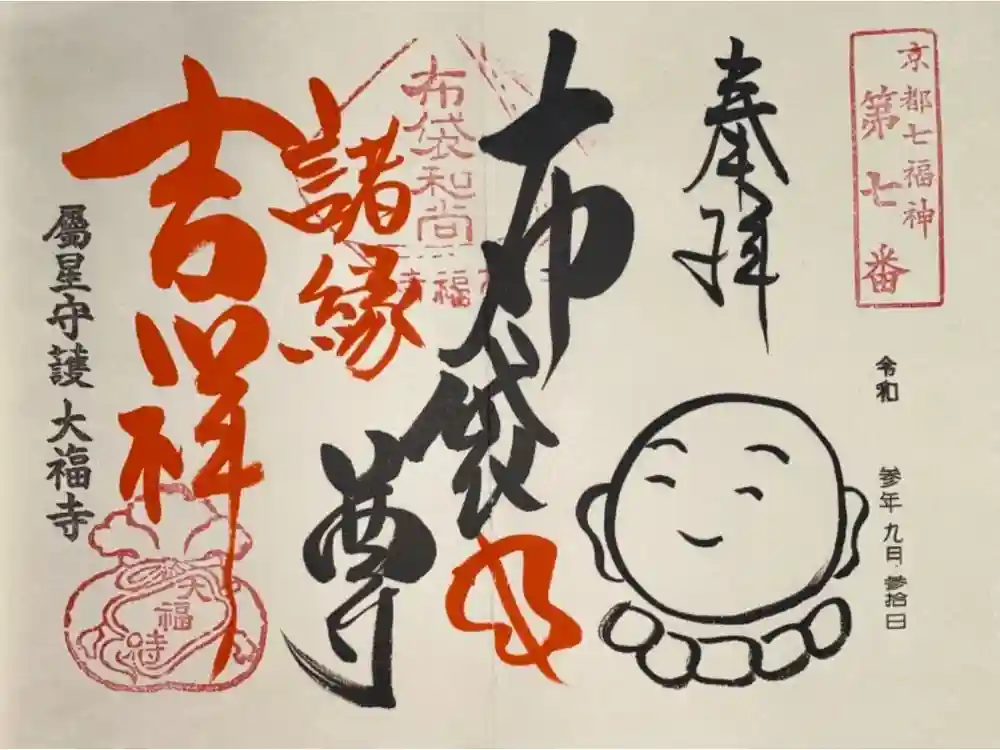 京都七福神
第七番
令和 参年 九月 参拾日
奉拝
布袋尊
布袋和尚
諸縁
吉祥
屬星守護 大福寺
大福寺